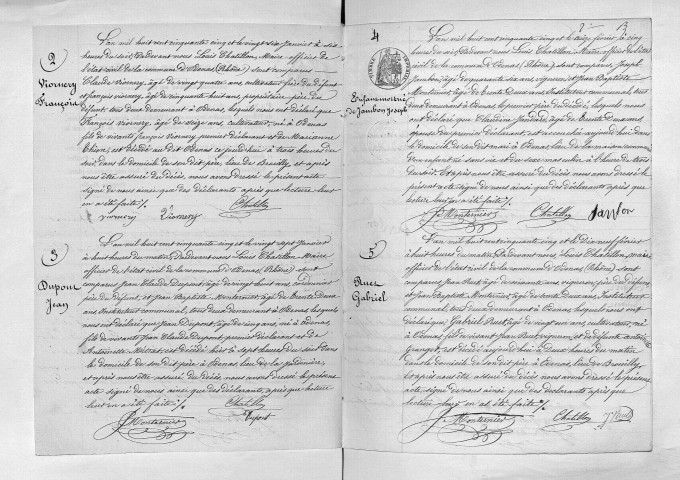 2
Viornery
François
L'an mil huit cent cinquante cinq et le vingt six Janvier à six
heures du soir, Pardevant nous Louis Chatillon, Maire, officier de
l'état civil de la commune d'Odenas, (Rhône) sont comparus
Claude Viornery, âgé de vingt quatre ans, cultivateur, frère du défunt
et françois viornery, âgé de cinquante huit ans, propriétaire, père du
défunt, tous deux demeurant à Odenas, lesquels nous ont déclaré que
François Viornery, âgé de seize ans, cultivateur, né à Odenas
fils de vivants françois Viornery premier déclarant et de
est décédé au dit Odenas ce jourd'hui à trois heures du
soir dans le domicile de son dit père, lieu de Brouilly, et après
nous être assuré du décès, nous avons dressé le présent acte
signé de nous ainsi que des déclarants après que lecture leur
en a été faite %.
Viornery Viornery Chatillon
3
Dupont
Jean
L'an mil huit cent cinquante cinq et le vingt sept Janvier
à huit heures du matin, Pardevant nous Louis Chatillon, Maire
officier de l'état civil de la commune d'Odenas, (Rhône) sont
comparus Jean Claude Dupont, âgé de vingt huit ans,
père du défunt, et Jean Baptiste Monternier âgé de trente deux
ans Instituteur communal, tous deux demeurant à Odenas, lesquels
nous ont déclaré que Jean Dupont, âgé de cinq ans, né à Odenas,
fils de vivants Jean Claude Dupont, premier déclarant et de
Antoinette est décédé hier à sept heures du soir dans
le domicile de son dit père à Odenas, lieu de la
et après nous être assuré du décès, nous avons dressé le présent
acte signé de nous ainsi que des déclarants, après que lecture
leur en a été faite %.
Monternier Chatillon
Dupont
3
4
Enfant mort né
de Jambon Joseph
L'an mil huit cent cinquante cinq et le seize février à cinq
heures du soir, Pardevant nous Louis Chatillon, Maire, officier de l'état
civil de la commune d'Odenas (Rhône) sont comparus, Joseph
Jambon, âgé de quarante six ans, vigneron, et Jean Baptiste
Monternier, âgé de trente deux ans, Instituteur communal, tous
deux demeurant à Odenas, le premier père du décédé, lesquels nous
ont déclaré que Claudine âgée de trente deux ans,
épouse du premier déclarant, est accouchée aujourd'hui dans
le domicile de son dit mari à Odenas,
d'un enfant né sans vie et du sexe masculin à l'heure de trois
du soir. Et après nous être assuré du décès nous avons dressé le
présent acte signé de nous ainsi que des déclarants après que
lecture leur en a été faite %.
Monternier Chatillon Janbon
5
Ruet
Gabriel
L'an mil huit cent cinquante cinq et le dix neuf février
à huit heures du matin, Pardevant nous Louis Chatillon, maire
officier de l'état civil de la commune d'Odenas, (Rhône) sont
comparus Jean Ruet, âgé de ans, vigneron, père du défunt
et Jean Baptiste, Monternier, âgé de trente deux ans, Instituteur
communal, tous deux demeurant à Odenas, lesquels nous ont
déclaré que Gabriel Ruet, âgé de vingt ans, cultivateur, né
à Odenas, fils de vivant Jean Ruet, vigneron, et de défunte
est décédé aujourd'hui à deux heures du matin
dans le domicile de son dit père à Odenas, lieu de Brouilly
et après nous être assuré du décès nous avons dressé le présent
acte signé de nous ainsi que des déclarants après que
lecture leur en a été faite %.
Monternier Chatillon J Ruet